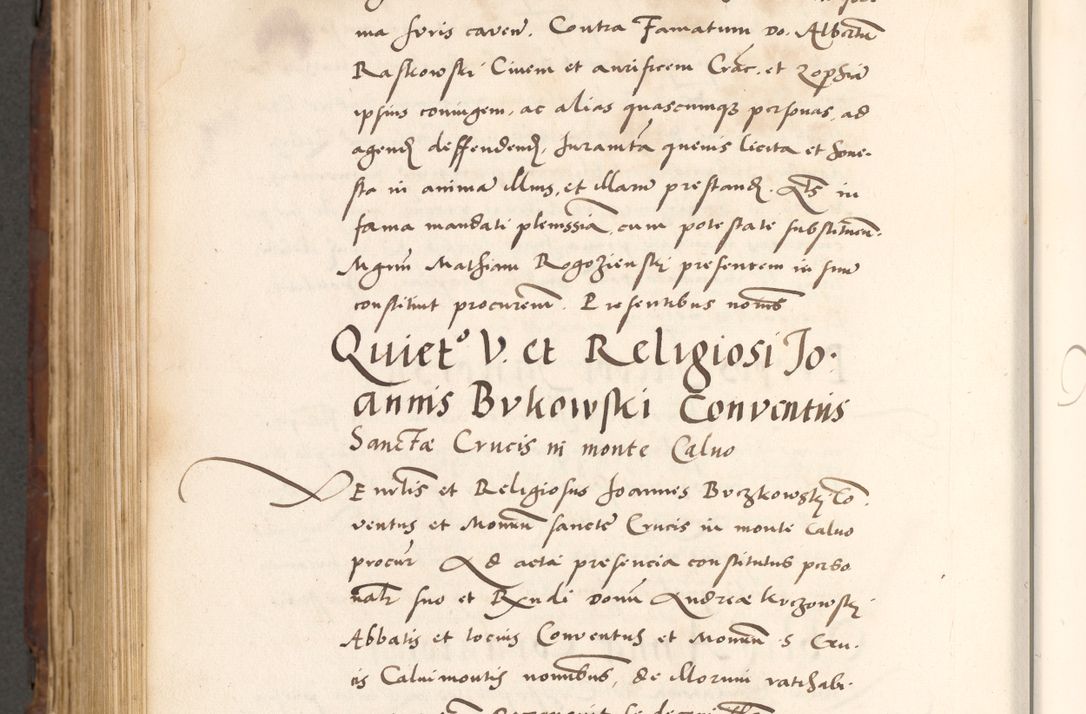 ma foris caven. Contra Famatum Do. Albertũ
Raskowski Civem et aurificem Crac. et Zophiã
ipsius coniugem, ac alias quascumqz personas, ad
agend deffendend, Juramta quevis licita et hone-
sta in anima illius, et illarum prestand. Qts in
fama mandati plenissia, cum potestate substituen.
Mgrm Mathiam Rogozienski presentem in sum
constituit procurem. Presentibus nobis
Quiet° V. et Religiosi Jo.
annis Bvkowski Conventus
Sanctæ Crucis in monte Calvo
Venrlis et Religiosus Joannes Bvczkowsky Co
ventus et Monrii sancte Crucis in monte Calvo
procur Ad acta presencia constitutus perso
natr suo et Rxndi domi Andreæ
Abbatis et tocius Conventus et Monrii S Cru.
cis Calvimontis nominibus, de illorum ratihabi.